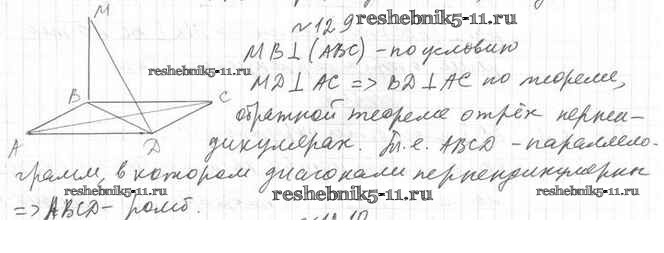 M
№129
reshebnik5-11.ru
MB⊥(ABC) - по условию
reshebnik5-11.ru
MD⊥AC => BD⊥AC по теореме,
B
C
обратной теореме о трёх перпен-
A
D
дикулярах. Т.е. ABCD - параллело-
грамм, в котором диагонали перпендикулярны
reshebnik5-11.ru
reshebnik5-11.ru
reshebnik5-11.ru
=> ABCD - ромб.